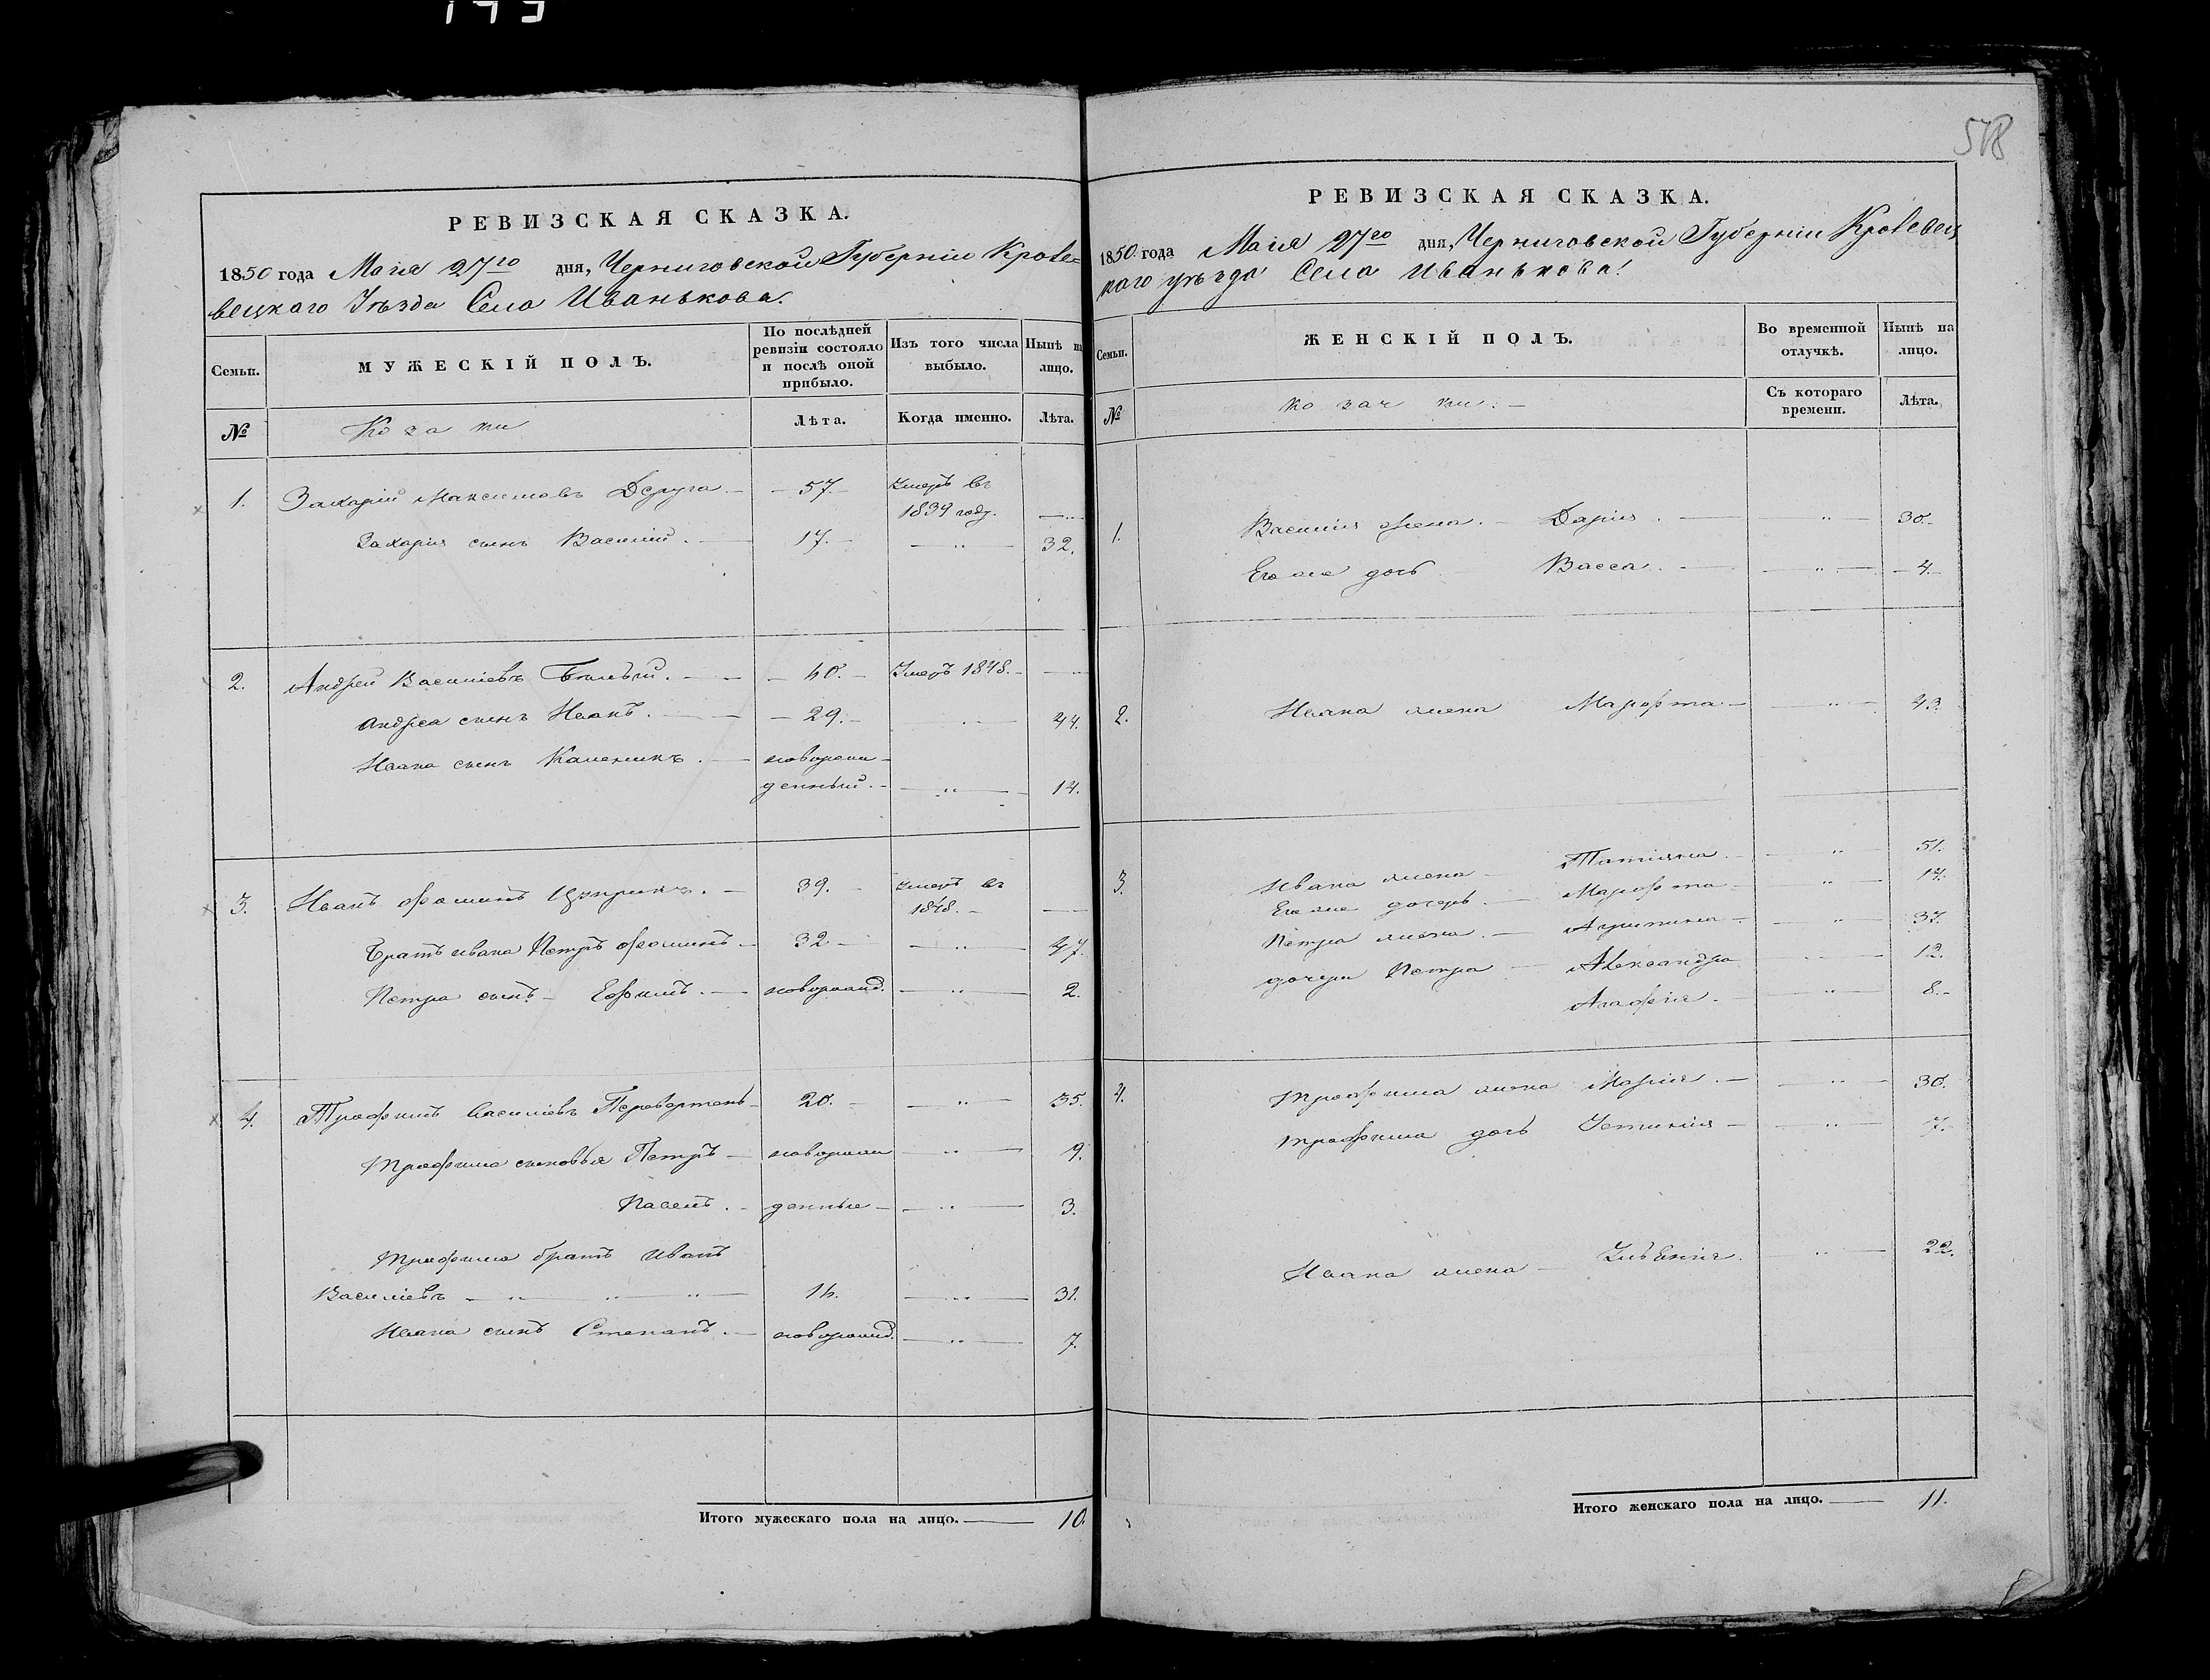 145
РЕВИЗСКАЯ СКАЗКА.
1850 года Маія 27го дня, Черниговской Губерніи Кроле-
вецкаго Уѣзда Села Иванькова.
Семьи.
МУЖЕСКІЙ ПОЛЪ.
По послѣдней ревизіи состояло и послѣ оной прибыло.
Изъ того числа выбыло.
Нынѣ на лицо.
№
Козаки
Лѣта.
Когда именно.
Лѣта.
1. Захарій Максимовъ Деруга 57. Умеръ въ
1839 году.
Захарія сынъ Василій. 17. 32.
2. Андрей Василіевъ Бѣлый. 60. Умеръ 1848.
Андрея сынъ Иванъ. 29. 44.
Ивана сынъ Каленикъ. новорож-
денный. 14.
3. Иванъ Фоминъ 39. Умеръ въ
1848.
Братъ Ивана Петръ Фоминъ 32 47.
Петра сынъ Ефимъ. новорожд. 2.
4. Трофимъ Василіевъ Перевертень 20. 35.
Трофима сыновья Петръ новорож 9.
Павелъ. денные 3.
Трофима братъ Иванъ
Василіевъ 16. 31.
Ивана сынъ Степанъ. новорожд. 7.
Итого мужескаго пола на лицо. 10.
578
РЕВИЗСКАЯ СКАЗКА.
1850 года Маія 27го дня, Черниговской Губерніи Кролевец
каго уѣзда Села Иванькова.
Семьи.
ЖЕНСКІЙ ПОЛЪ.
Во временной отлучкѣ.
Нынѣ на лицо.
№
козачки.
Съ котораго времени.
Лѣта.
1. Василія жена. Дарія. 30.
Его же дочь Васса. 4.
2. Ивана жена Марфа 43.
3. Ивана жена Татіяна. 51.
Его же дочерь. Марфа 17.
Петра жена. 37.
дочери Петра Александра 12.
Агафія. 8.
4. Трофима жена Марія. 30.
Трофима дочь Устинія 7.
Ивана жена 22.
Итого женскаго пола на лицо. 11.